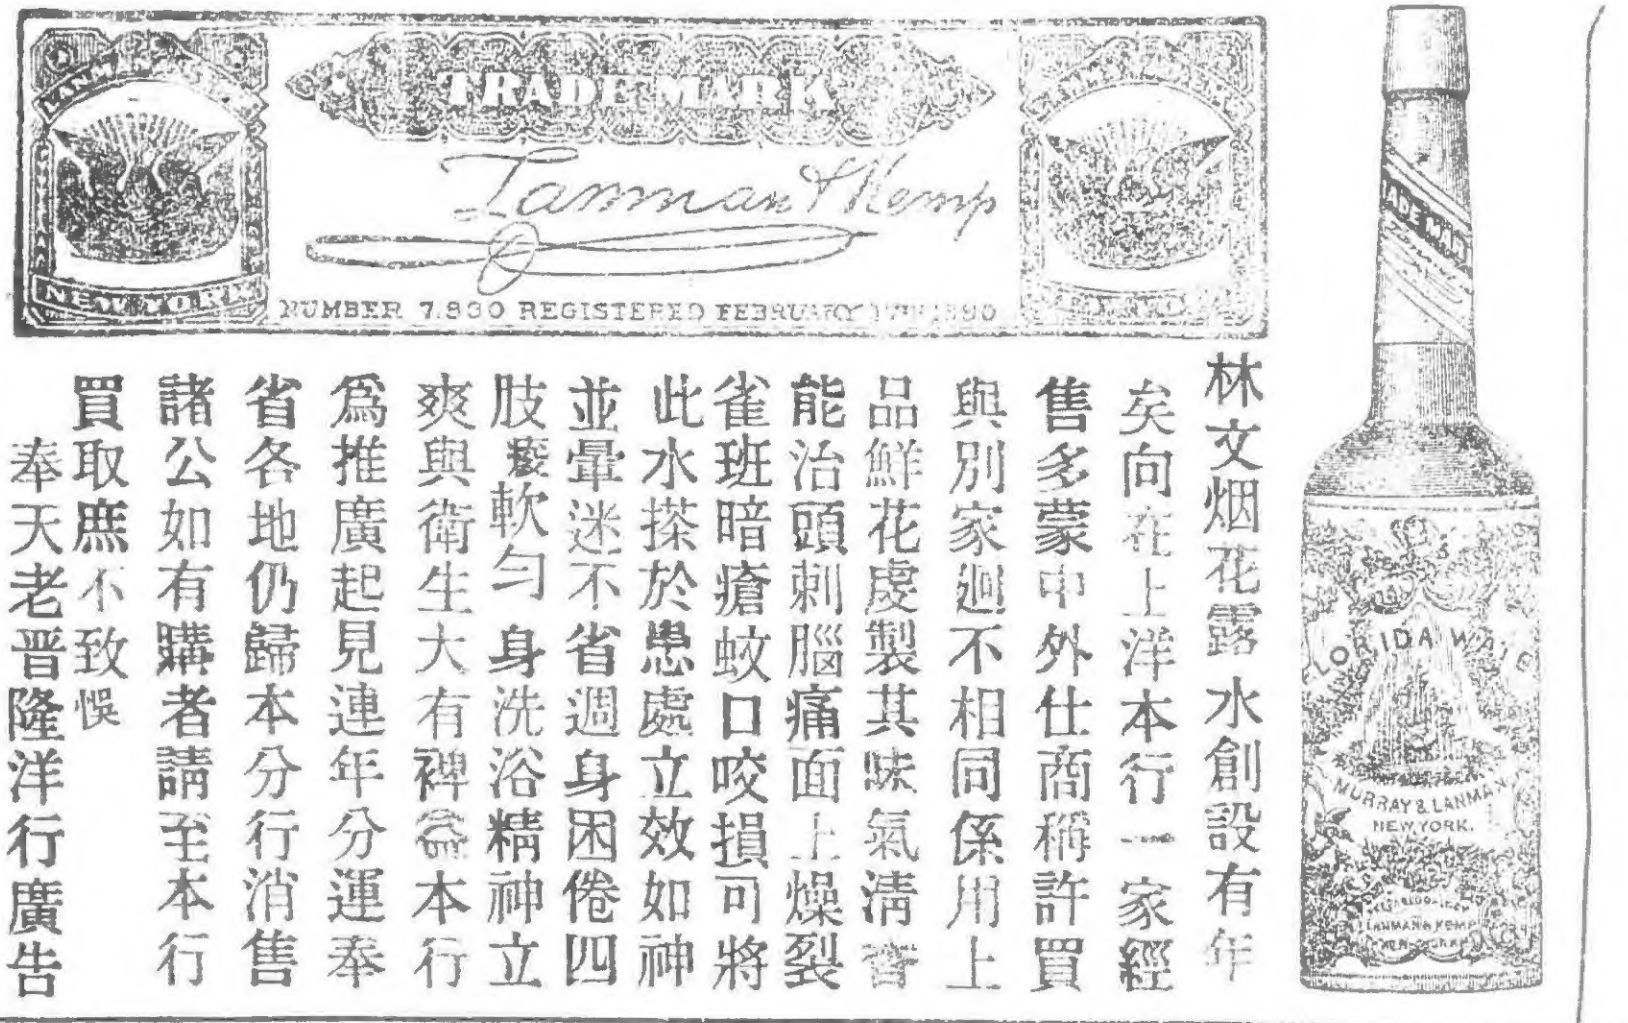 LANMAN & KEMP
NEW YORK
TRADE MARK
Lanman & Kemp
NUMBER 7.830 REGISTERED FEBRUARY
TRADE MARK
FLORIDA WATER
MURRAY & LANMAN
NEW YORK.
LANMAN & KEMP
NEW YORK
林文烟花露水創設有年
矣向在上洋本行一家經
售多蒙中外仕商稱許買
與別家迥不相同係用上
品鮮花虔製其味氣清香
能治頭刺腦痛面上燥裂
雀班暗瘡蚊口咬損可將
此水搽於患處立效如神
並暈迷不省週身困倦四
肢痠軟勻身洗浴精神立
爽與衛生大有裨益本行
爲推廣起見連年分運奉
省各地仍歸本分行消售
諸公如有購者請至本行
買取庶不致悞
奉天老晋隆洋行廣告